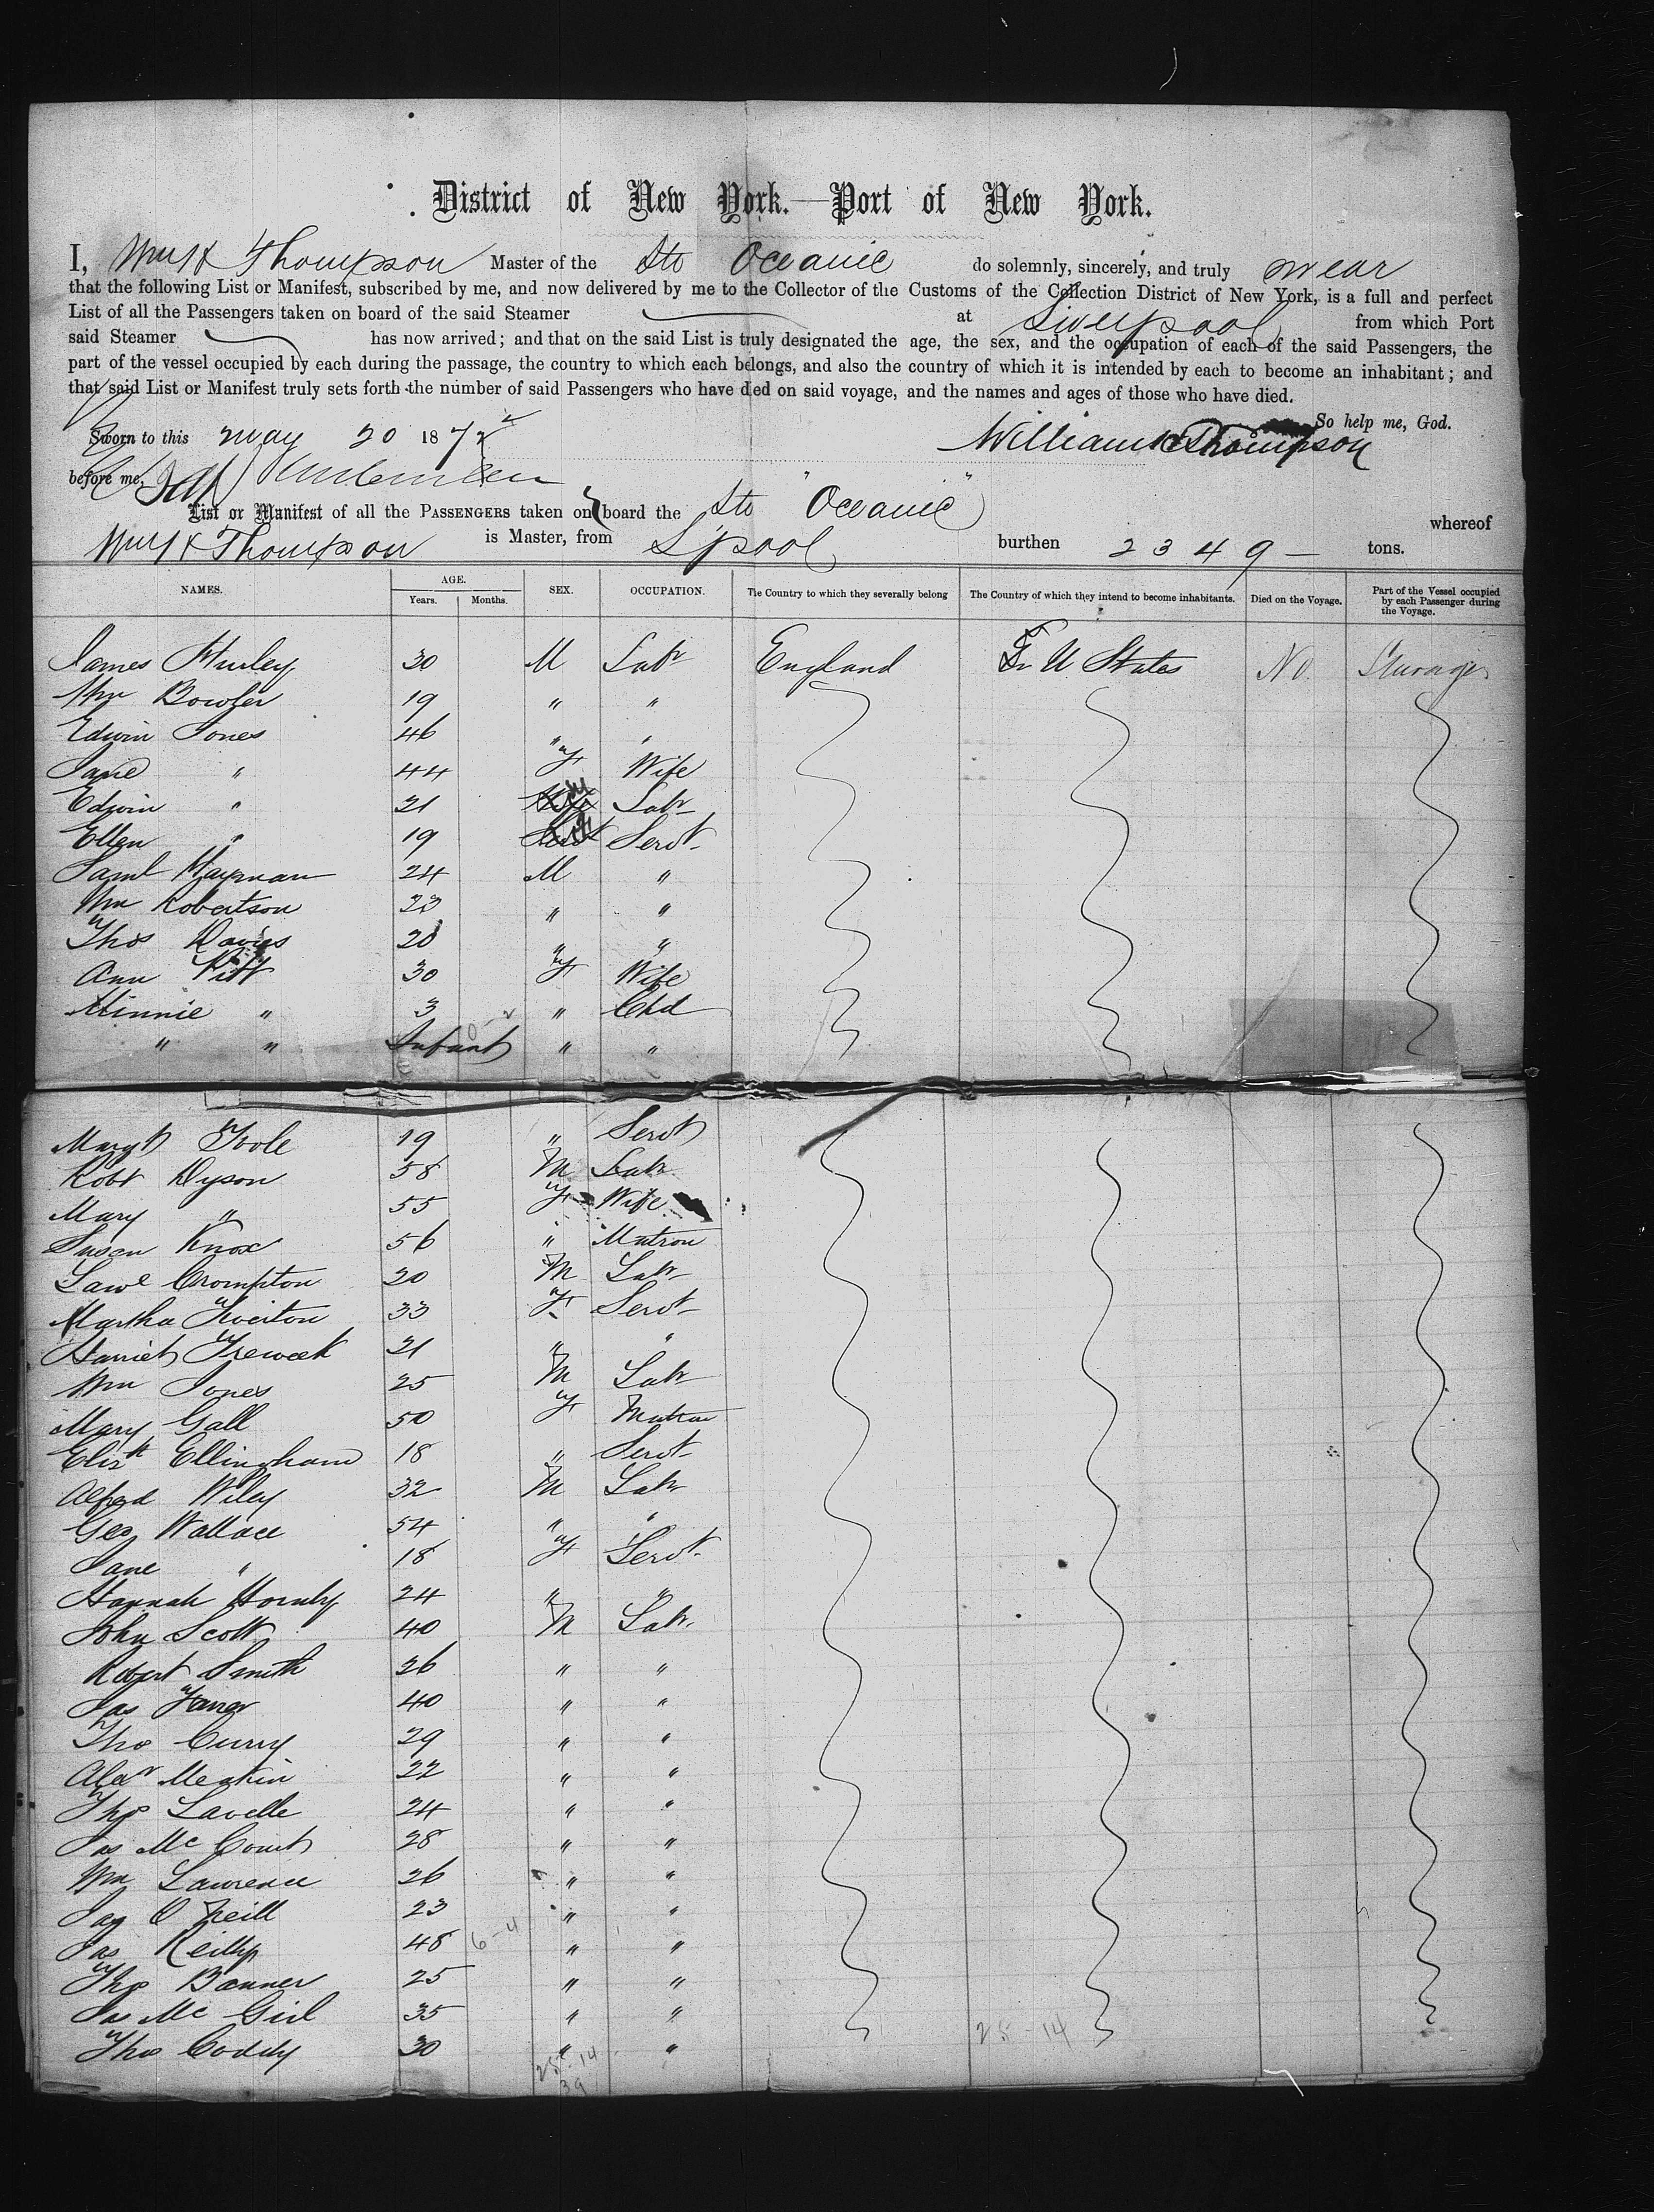 District of New York.—Port of New York.
I, Wm H Thompson Master of the Str Oceanic do solemnly, sincerely, and truly swear
that the following List or Manifest, subscribed by me, and now delivered by me to the Collector of the Customs of the Collection District of New York, is a full and perfect
List of all the Passengers taken on board of the said Steamer at Liverpool from which Port
said Steamer has now arrived; and that on the said List is truly designated the age, the sex, and the occupation of each of the said Passengers, the
part of the vessel occupied by each during the passage, the country to which each belongs, and also the country of which it is intended by each to become an inhabitant; and
that said List or Manifest truly sets forth the number of said Passengers who have died on said voyage, and the names and ages of those who have died.
So help me, God.
Sworn to this May 20 1872 William H Thompson
before me,
List or Manifest of all the PASSENGERS taken on board the Str "Oceanic" whereof
Wm H Thompson is Master, from L'pool burthen 2349 — tons.
NAMES. AGE. Years. Months. SEX. OCCUPATION. The Country to which they severally belong The Country of which they intend to become inhabitants. Died on the Voyage. Part of the Vessel occupied by each Passenger during the Voyage.
James Hurley 30 M Labr England U States No. Steerage
Wm Bowler 19 " "
Edwin Jones 46 " "
Jane " 44 F Wife
Edwin " 21 M Labr
Ellen " 19 F Servt
Saml Hayman 24 M "
Wm Robertson 23 " "
Thos Davies 20 " "
Ann Pitt 30 F Wife
Minnie " 3 " Chd
" " Infant " "
Margt Toole 19 " Servt
Robt Dyson 58 M Labr
Mary " 55 F Wife
Susan Knox 56 " Matron
Lawe Crompton 20 M Labr
Martha Foerton 33 F Servt
Harriet Treweek 21 " "
Wm Jones 25 M Labr
Mary Gall 50 F Matron
Elizh Ellingham 18 " Servt
Alfred Wiley 32 M Labr
Geo Wallace 54 " "
Jane " 18 F Servt
Hannah Hornby 24 " "
John Scott 40 M Labr
Robert Smith 26 " "
Jas Farrer 40 " "
Tho Curry 29 " "
Alexr Meakin 22 " "
Tho Lavelle 24 " "
Jas McCourt 28 " "
Wm Lawrence 26 " "
Jas O Neill 23 " "
Jas Reilly 48 6-4 " "
Tho Banner 25 " "
Jas Mc Girl 35 " "
Tho Coddy 30 " "
25-14 25-14
39